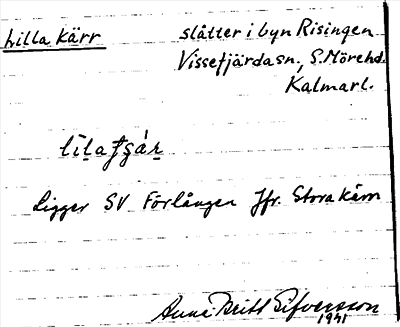 Lilla Kärr
slåtter i byn Risingen
Vissefjärda sn., S. Möre hd.
Kalmar l.
Ligger SV Förlången Jfr. Stora Kärr
Anna-Britt Sifversson
1941